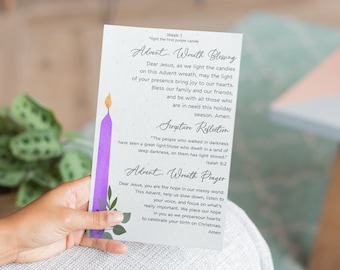 Week 1
*light the first purple candle
Advent Wreath Blessing
Dear Jesus, as we light the candles
on this Advent wreath, may the light
of your presence bring joy to our hearts.
Bless our family and our friends,
and be with all those who
are in need this holiday
season. Amen.
Scripture Reflection
"The people who walked in darkness
have seen a great light:those who dwelt in a land of
deep darkness, on them has light shined."
Isaiah 9:2
Advent Wreath Prayer
Dear Jesus, you are the hope in our messy world.
This Advent, help us slow down, listen to
your voice, and focus on what's
really important. We place our hope
in you as we prepareour hearts
to celebrate your birth on Christmas.
Amen